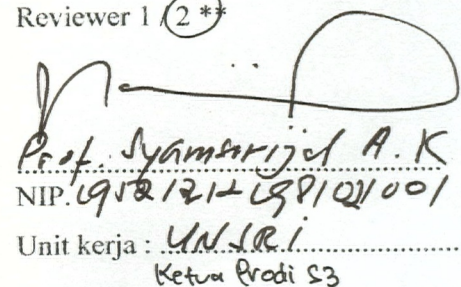 Reviewer 1 / 2 **
Prof. Syamsurijal A. K
NIP. 195212121981021001
Unit kerja : UNSRI
Ketua Prodi S3